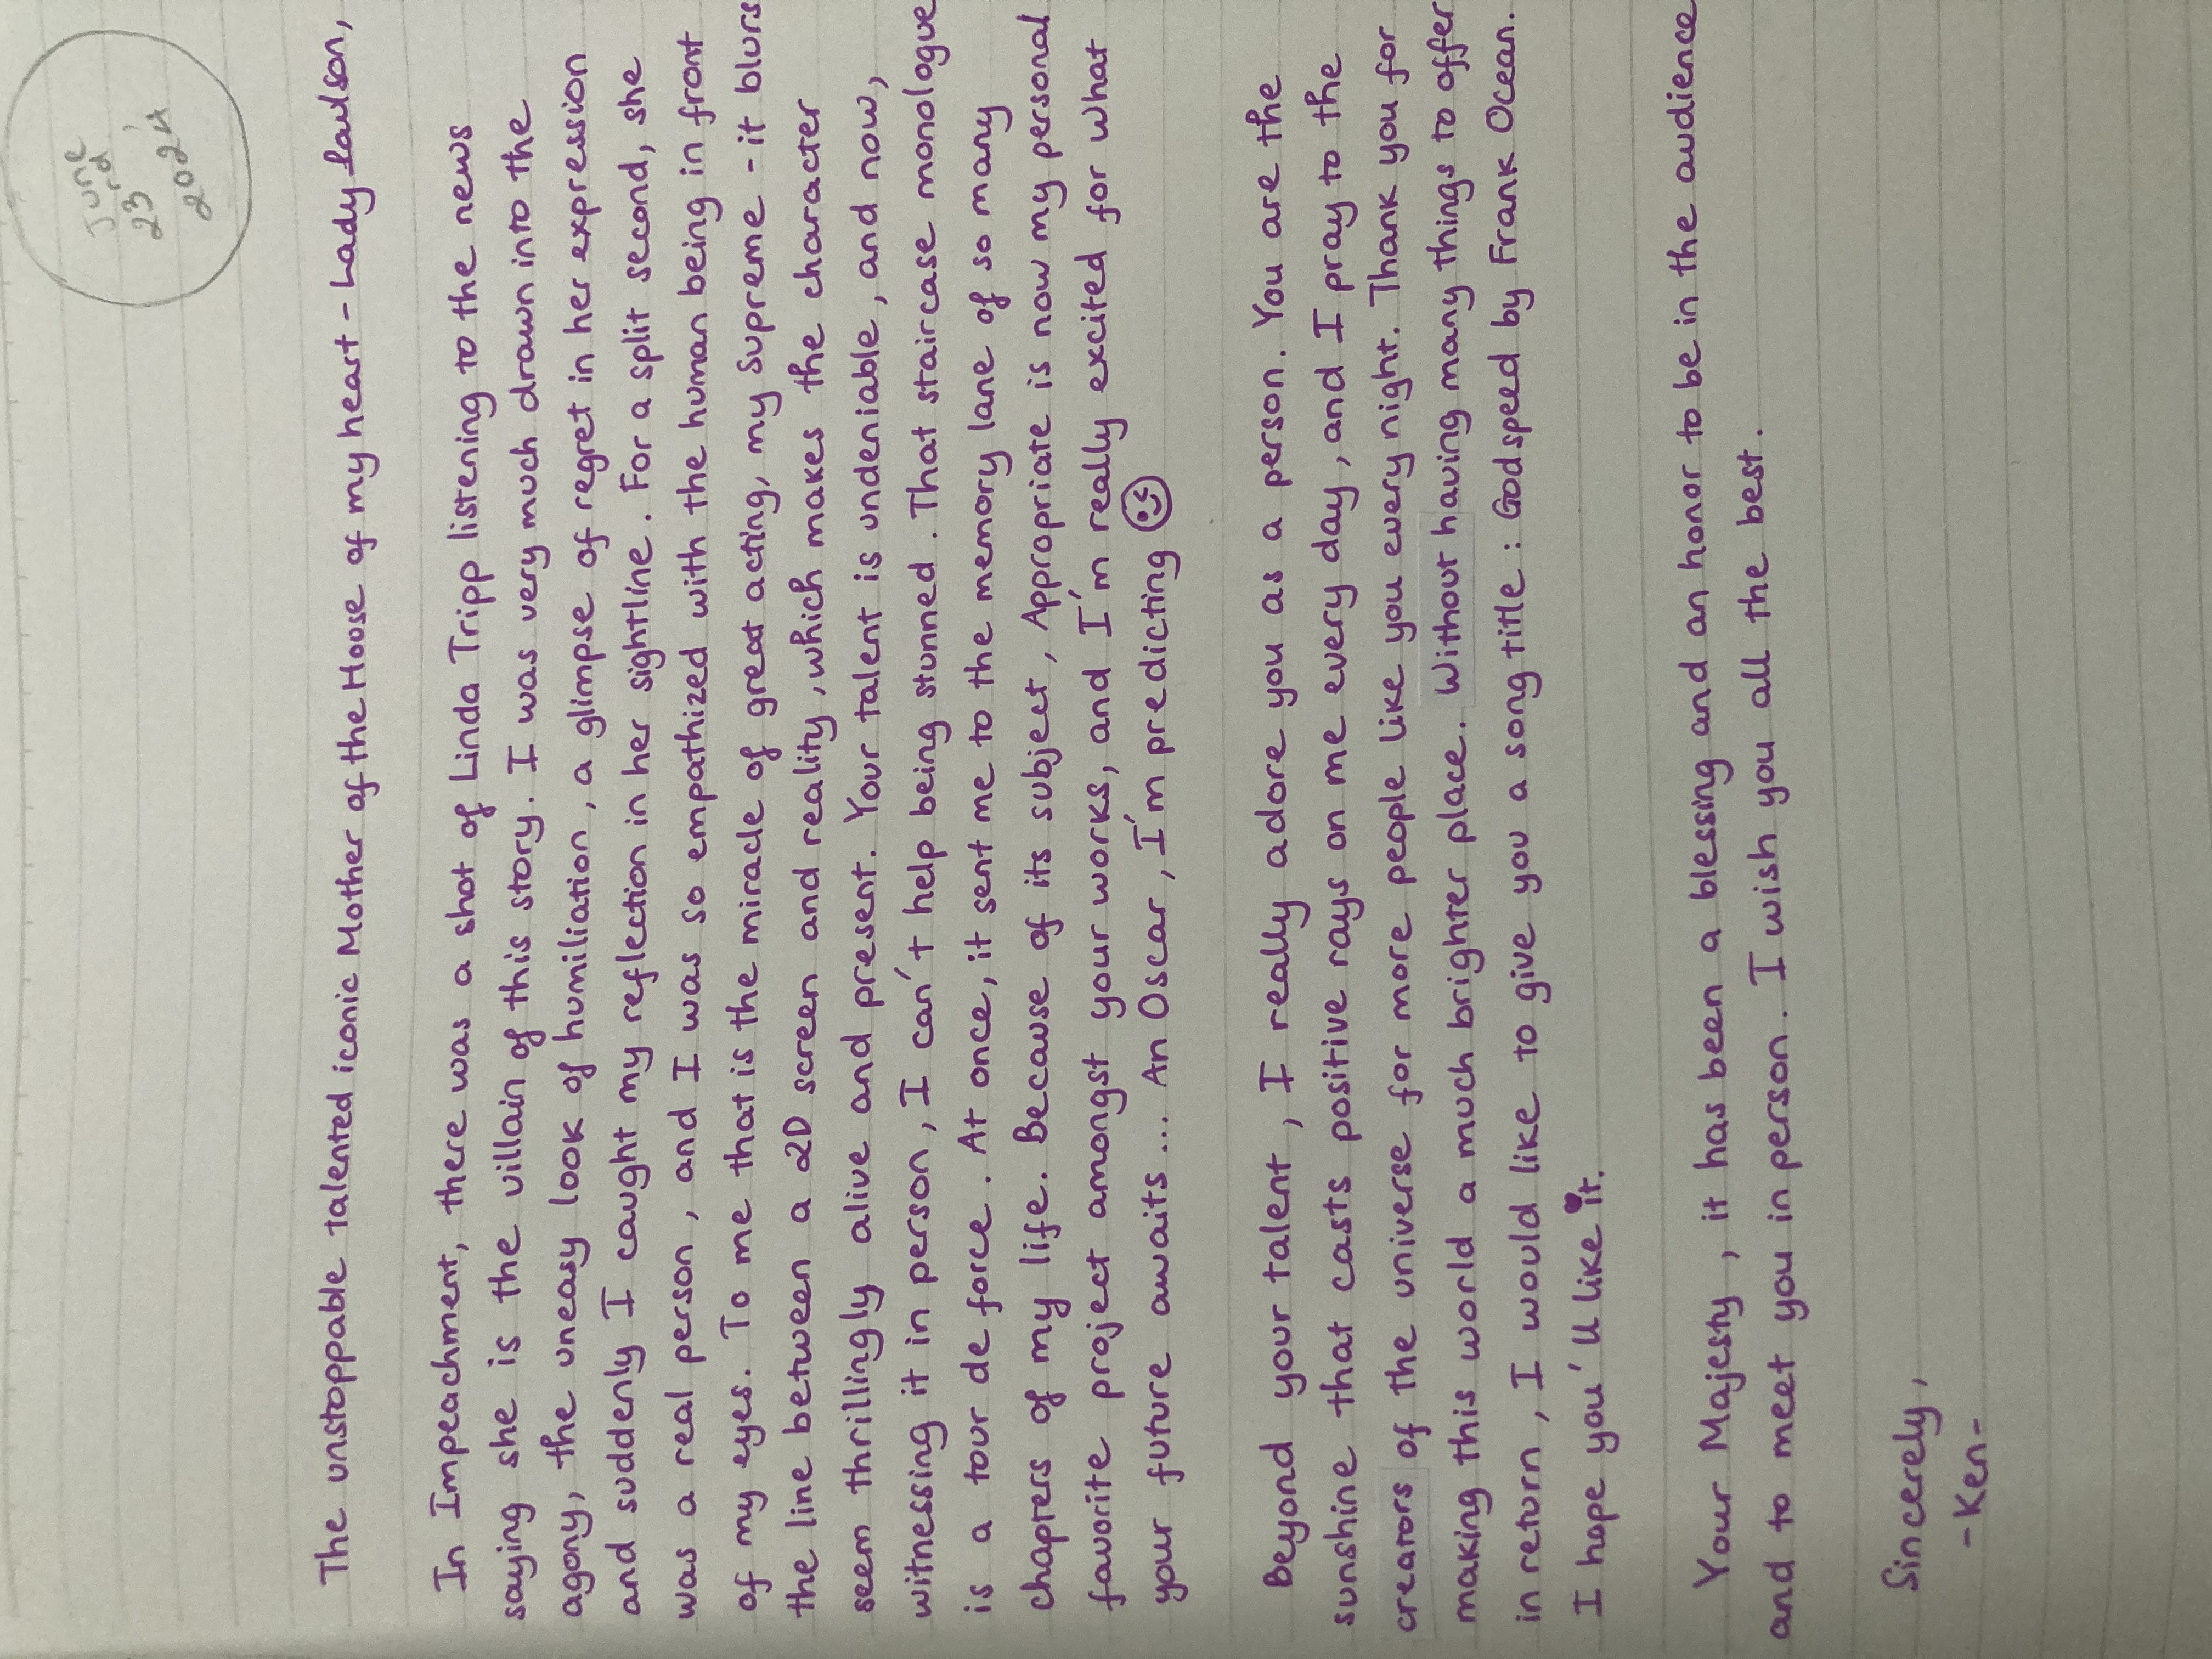 June
23rd,
2024
The unstoppable talented iconic Mother of the House of my heart - Lady Paulson,
In Impeachment, there was a shot of Linda Tripp listening to the news
saying she is the villain of this story. I was very much drawn into the
agony, the uneasy look of humiliation, a glimpse of regret in her expression
and suddenly I caught my reflection in her sightline. For a split second, she
was a real person, and I was so empathized with the human being in front
of my eyes. To me that is the miracle of great acting, my Supreme - it blurs
the line between a 2D screen and reality, which makes the character
seem thrillingly alive and present. Your talent is undeniable, and now,
witnessing it in person, I can't help being stunned. That staircase monologue
is a tour de force. At once, it sent me to the memory lane of so many
chapters of my life. Because of its subject, Appropriate is now my personal
favorite project amongst your works, and I'm really excited for what
your future awaits... An Oscar, I'm predicting 😉
Beyond your talent, I really adore you as a person. You are the
sunshine that casts positive rays on me every day, and I pray to the
creators of the universe for more people like you every night. Thank you for
making this world a much brighter place. Without having many things to offer
in return, I would like to give you a song title: Godspeed by Frank Ocean.
I hope you'll like it.
Your Majesty, it has been a blessing and an honor to be in the audience
and to meet you in person. I wish you all the best.
Sincerely,
-Ken-